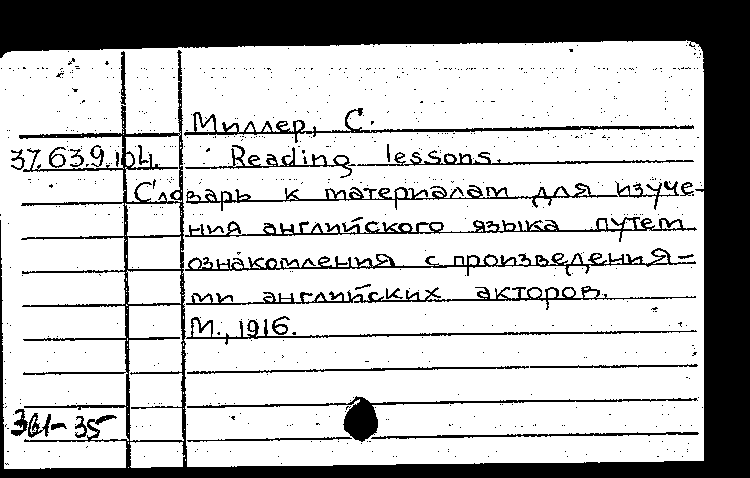 Миллер, С.
37.63.9.104. Reading lessons.
Словарь к материалам для изуче-
ния английского языка путем
ознакомления с произведения-
ми английских акторов.
М., 1916.
361-35